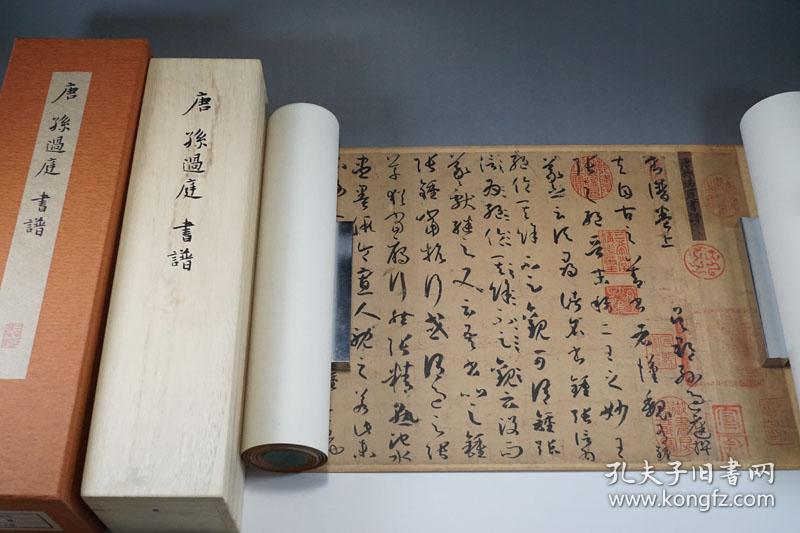 唐 孫過庭 書譜
唐 孫過庭 書譜
書譜卷上
吳郡孫過庭撰
夫自古之善書者漢魏有鍾
張之絕晉末稱二王之妙王
羲之云頃尋諸名書鍾張信為
絕倫其餘不足觀可謂鍾張
絕倫其餘不足觀云沒而
羲獻繼之又云吾書比之鍾
張鍾當抗行或謂過之張
草猶當鴈行然張精熟池水
盡墨假令寡人耽之若此未
孔夫子旧书网
www.kongfz.com